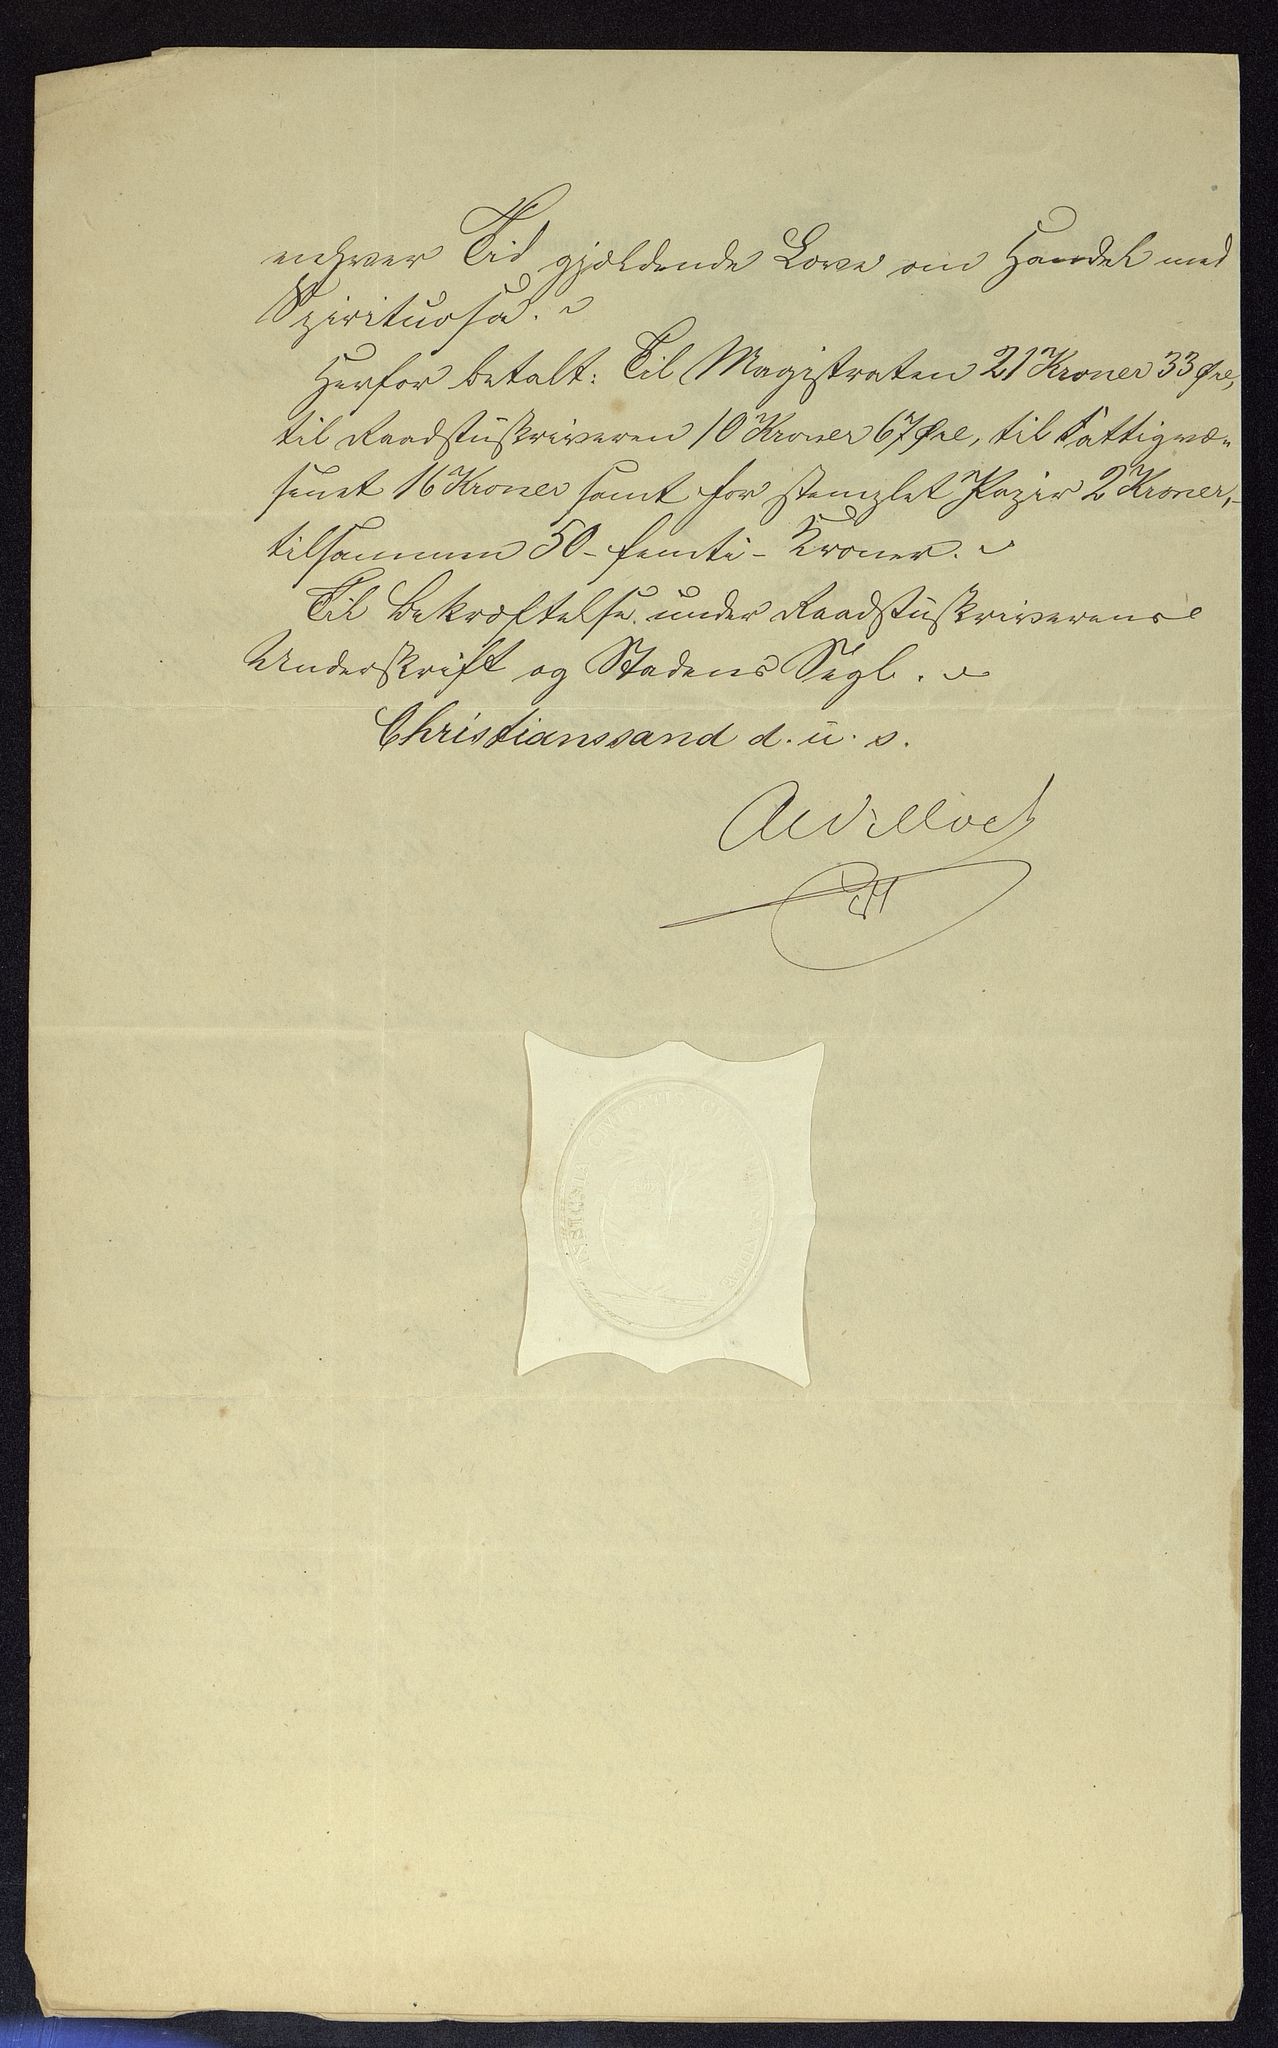 enhver Tid gjældende Love om Handel med
Spirituosa.
Herfor betalt: Til Magistraten 21 Kroner 33 Øre,
til Raadstuskriveren 10 Kroner 67 Øre, til Fattigvæ-
senet 16 Kroner samt for stemplet Papir 2 Kroner,-
tilsammen 50 - femti - Kroner.
Til Bekræftelse under Raadstuskriverens
Underskrift og Stadens Segl.
Christianssand d. u. s.
INSIGNIA CIVITATIS